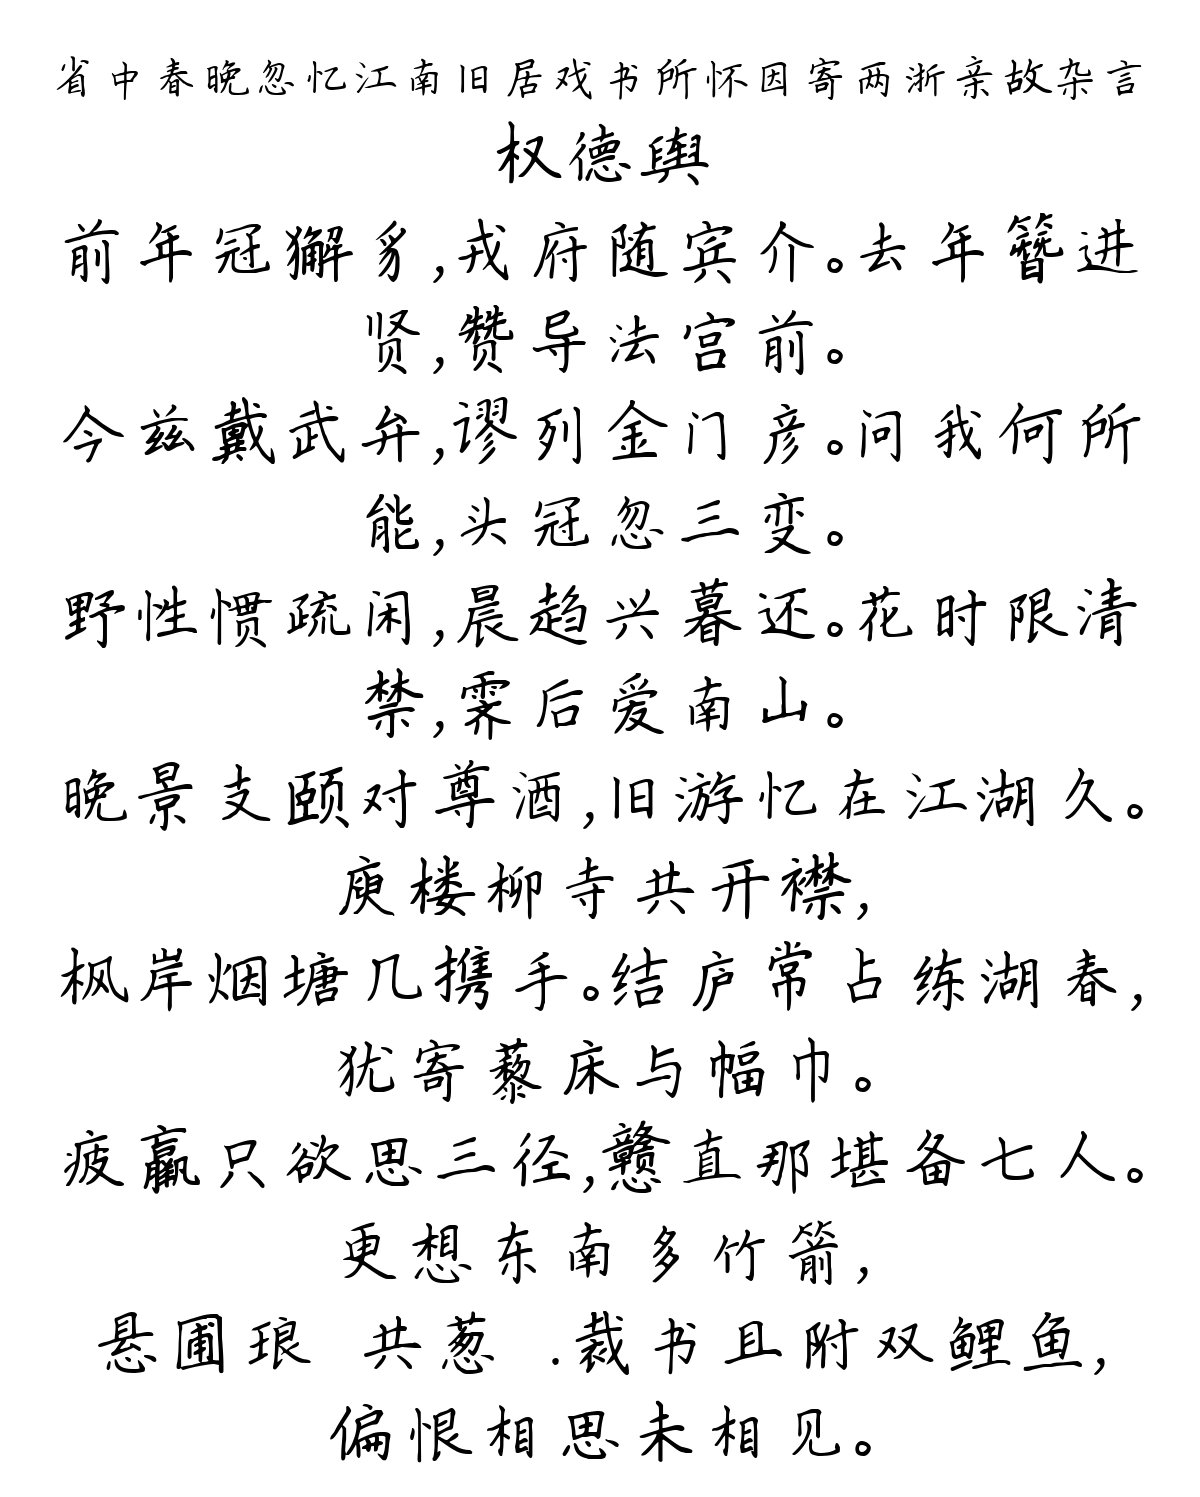 省中春晚忽忆江南旧居戏书所怀因寄两浙亲故杂言
权德舆
前年冠獬豸,戎府随宾介。去年簪进
贤,赞导法宫前。
今兹戴武弁,谬列金门彦。问我何所
能,头冠忽三变。
野性惯疏闲,晨趋兴暮还。花时限清
禁,霁后爱南山。
晚景支颐对尊酒,旧游忆在江湖久。
庾楼柳寺共开襟,
枫岸烟塘几携手。结庐常占练湖春,
犹寄藜床与幅巾。
疲羸只欲思三径,戆直那堪备七人。
更想东南多竹箭,
悬圃琅 共葱 .裁书且附双鲤鱼,
偏恨相思未相见。